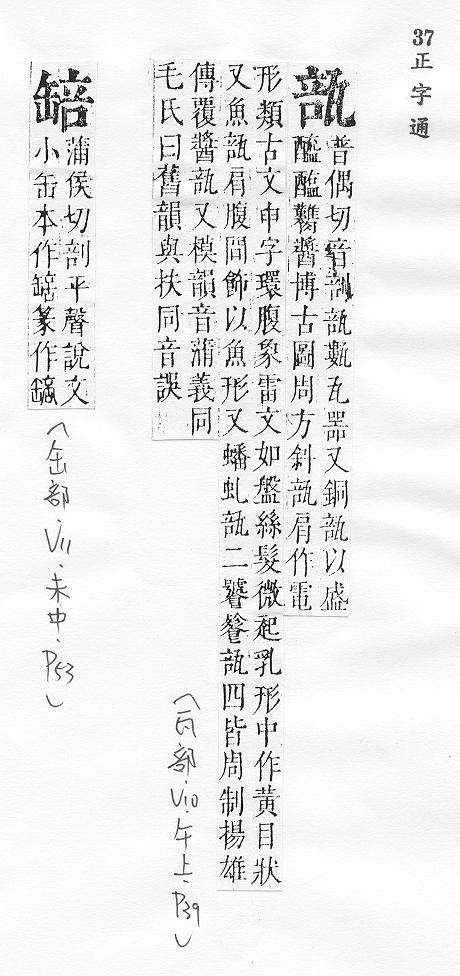 37正字通
瓿
普偶切音剖瓿甊瓦器又銅瓿以盛
醯醢醬博古圖周方斜瓿肩作電
形類古文申字環腹象雷文如盤絲髮微起乳形中作黃目狀
又魚瓿肩腹間飾以魚形又蟠虬瓿二饕餮瓿四皆周制揚雄
傳覆醬瓿又模韻音蒲義同
毛氏曰舊韻與扶同音誤
(瓦部、V10、午上、P39)
䍌
蒲侯切剖平聲說文
小缶本作䍌篆作
(缶部、V11、未中、P53)